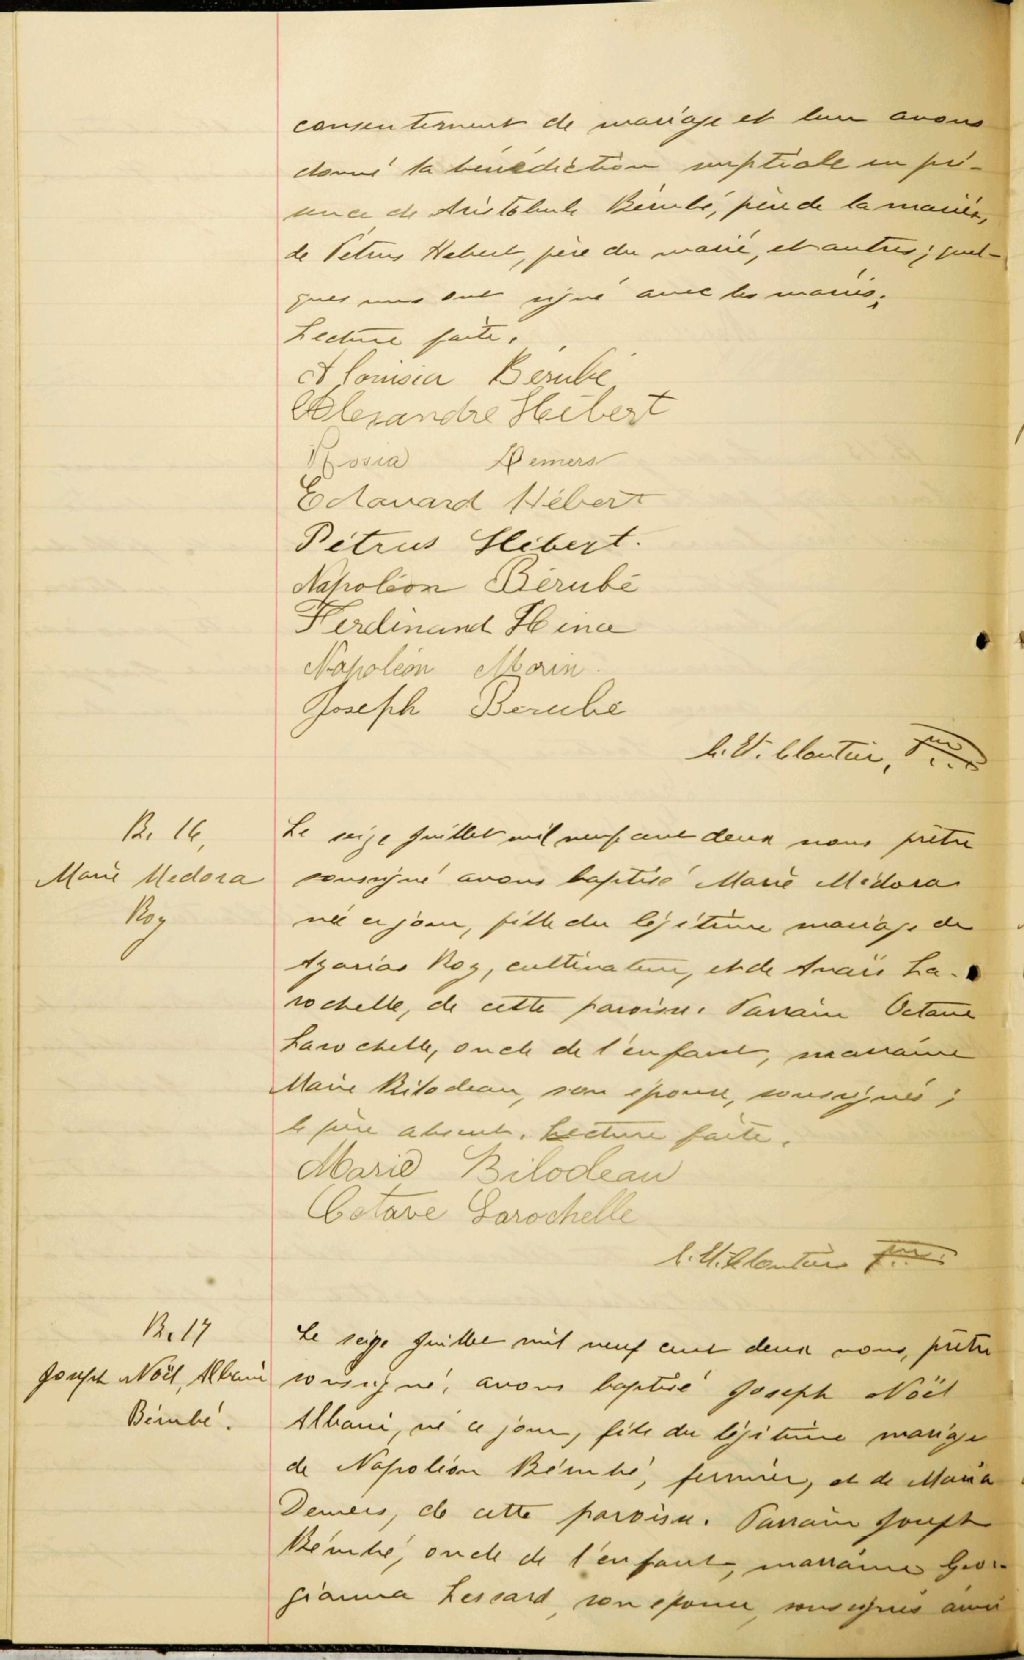 consentement de mariage et leur avons
donné la bénédiction nuptiale en pré-
sence de Aristobule Bérubé, père de la mariée,
de Pétrus Hebert, père du marié, et autres; quel-
ques uns ont signé avec les mariés.
Lecture faite.
Alouisia Bérubé
Alexandre Hébert
Rosia Demers
Edouard Hébert
Pétrus Hébert.
Napoléon Bérubé
Ferdinand
Napoléon Morin
Joseph Berubé
Cloutier, ptre
B. 16,
Marie Médora
Roy
Le seize Juillet mil neuf cent deux nous prêtre
soussigné avons baptisé Marie Médora
née ce jour, fille du légitime mariage de
Azarias Roy, cultivateur, et de Anaïs La-
rochelle, de cette paroisse. Parrain Octave
Larochelle, oncle de l'enfant, marraine
Marie Bilodeau, son épouse, soussignés;
le père absent. Lecture faite.
Marie Bilodeau
Octave Larochelle
Cloutier ptre.
B. 17
Joseph Noël, Albani
Bérubé.
Le seize Juillet mil neuf cent deux nous, prêtre
soussigné, avons baptisé Joseph Noël
Albani, né ce jour, fils du légitime mariage
de Napoléon Bérubé, fermier, et de Maria
Demers, de cette paroisse. Parrain Joseph
Bérubé, oncle de l'enfant, marraine Geor-
gianna Lessard, son épouse, soussignés ainsi